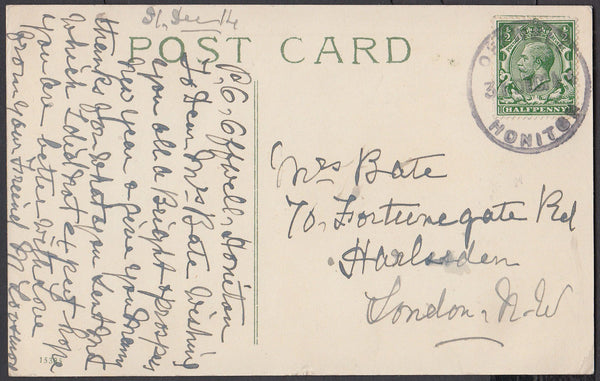 31, Dec 14
POST CARD
HALFPENNY
HONITON
P.O. Offwell, Honiton
To Dear Mrs Bate Wishing
you all a Bright & prospes
New year & give you many
thanks for what you sent me
which I did not expect hope
you are better with love
from your Friend M
Mrs Bate
70, Fortunegate Rd
Harlesden
London, N.W